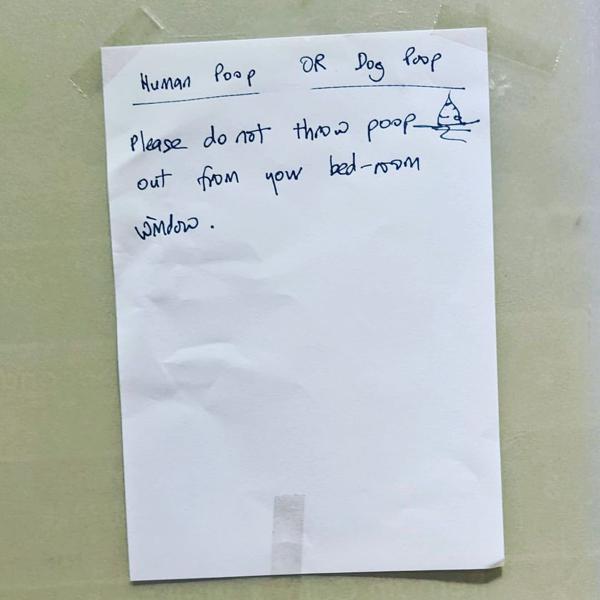 Human Poop OR Dog Poop
Please do not throw poop
out from your bed-room
window.